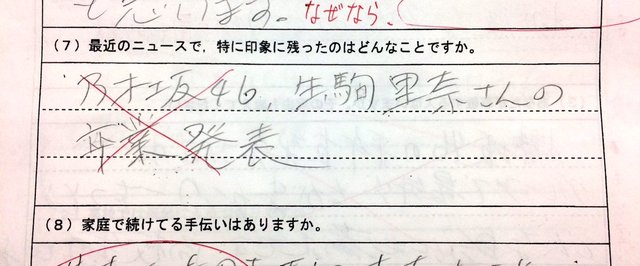 と思います。なぜなら、
(7) 最近のニュースで、特に印象に残ったのはどんなことですか。
乃木坂46、生駒里奈さんの
卒業発表
(8) 家庭で続けてる手伝いはありますか。